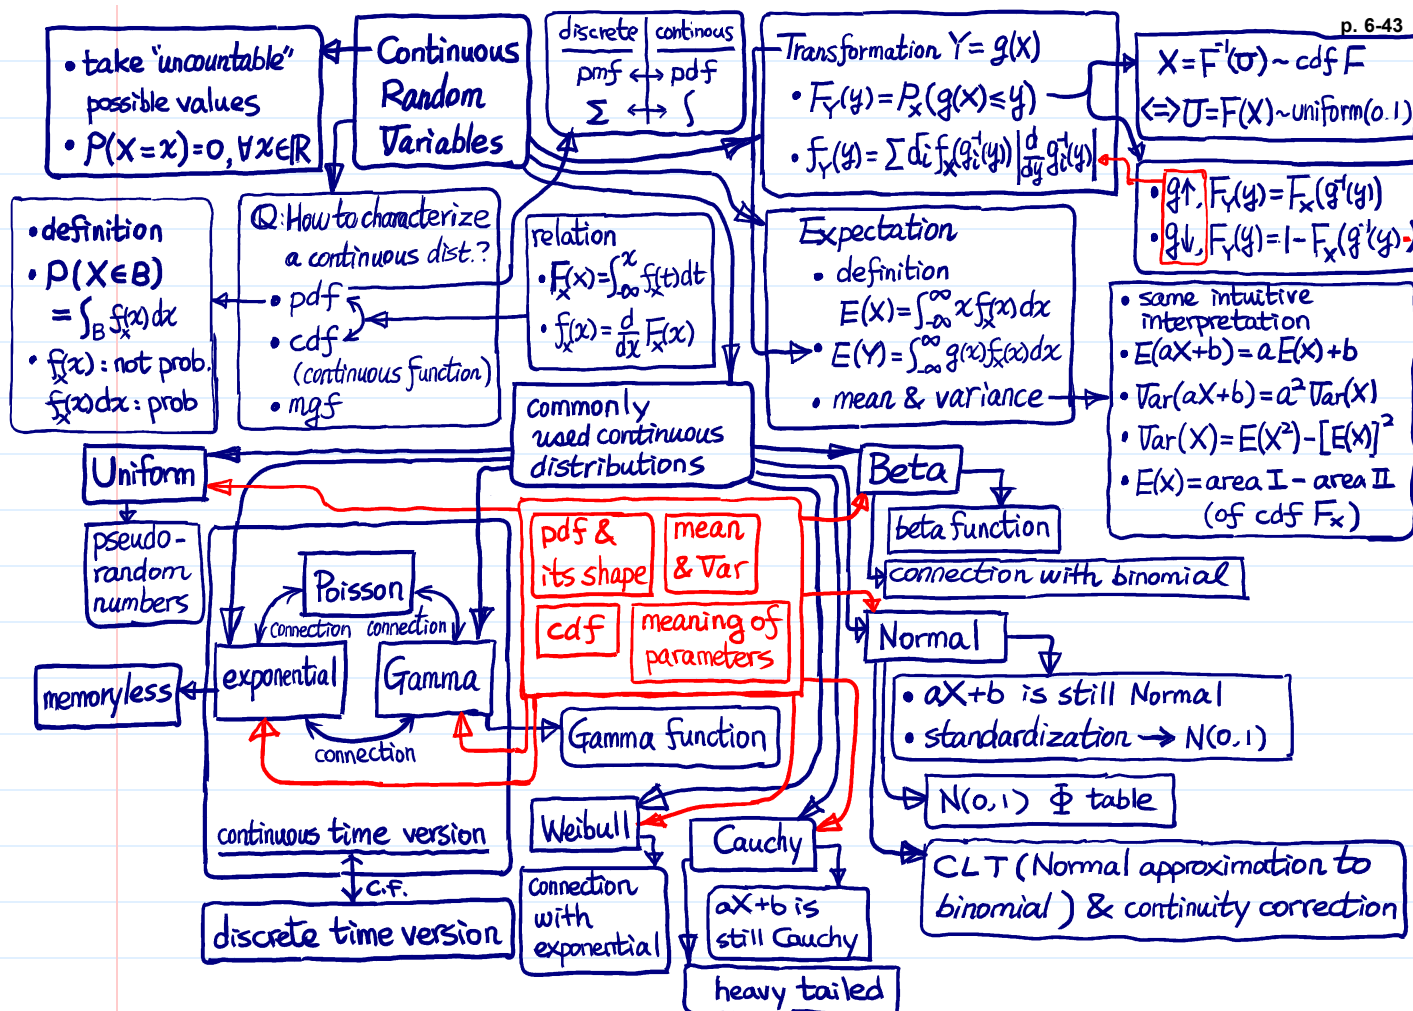 p. 6-43
• take "uncountable"
possible values
• P(X=x)=0, ∀x∈ℝ
Continuous
Random
Variables
discrete | continous
pmf ↔ pdf
Σ ↔ ∫
Transformation Y=g(X)
• F_Y(y)=P_X(g(X)≤y)
• f_Y(y)=Σ d_i f_X(g_i^{-1}(y)) |d/dy g_i^{-1}(y)|
X=F^{-1}(U)~cdf F
<=> U=F(X)~uniform(0.1)
• g↑, F_Y(y)=F_X(g^{-1}(y))
• g↓, F_Y(y)=1-F_X(g^{-1}(y)-)
• definition
• P(X∈B)
=∫_B f_X(x)dx
• f_X(x): not prob.
f_X(x)dx: prob
Q: How to characterize
a continuous dist.?
• pdf
• cdf
(continuous function)
• mgf
relation
• F_X(x)=∫_{-∞}^x f_X(t)dt
• f_X(x)=d/dx F_X(x)
Expectation
• definition
E(X)=∫_{-∞}^∞ x f_X(x)dx
• E(Y)=∫_{-∞}^∞ g(x)f_X(x)dx
• mean & variance
• same intuitive
interpretation
• E(aX+b)=aE(X)+b
• Var(aX+b)=a² Var(X)
• Var(X)=E(X²)-[E(X)]²
• E(X)=area I - area II
(of cdf F_X)
commonly
used continuous
distributions
Uniform
pseudo-
random
numbers
Poisson
connection
connection
exponential
Gamma
connection
memoryless
continuous time version
c.f.
discrete time version
pdf &
its shape
mean
& Var
cdf
meaning of
parameters
Gamma function
Weibull
connection
with
exponential
Cauchy
aX+b is
still Cauchy
heavy tailed
Beta
beta function
connection with binomial
Normal
• aX+b is still Normal
• standardization → N(0,1)
N(0,1) Φ table
CLT (Normal approximation to
binomial) & continuity correction